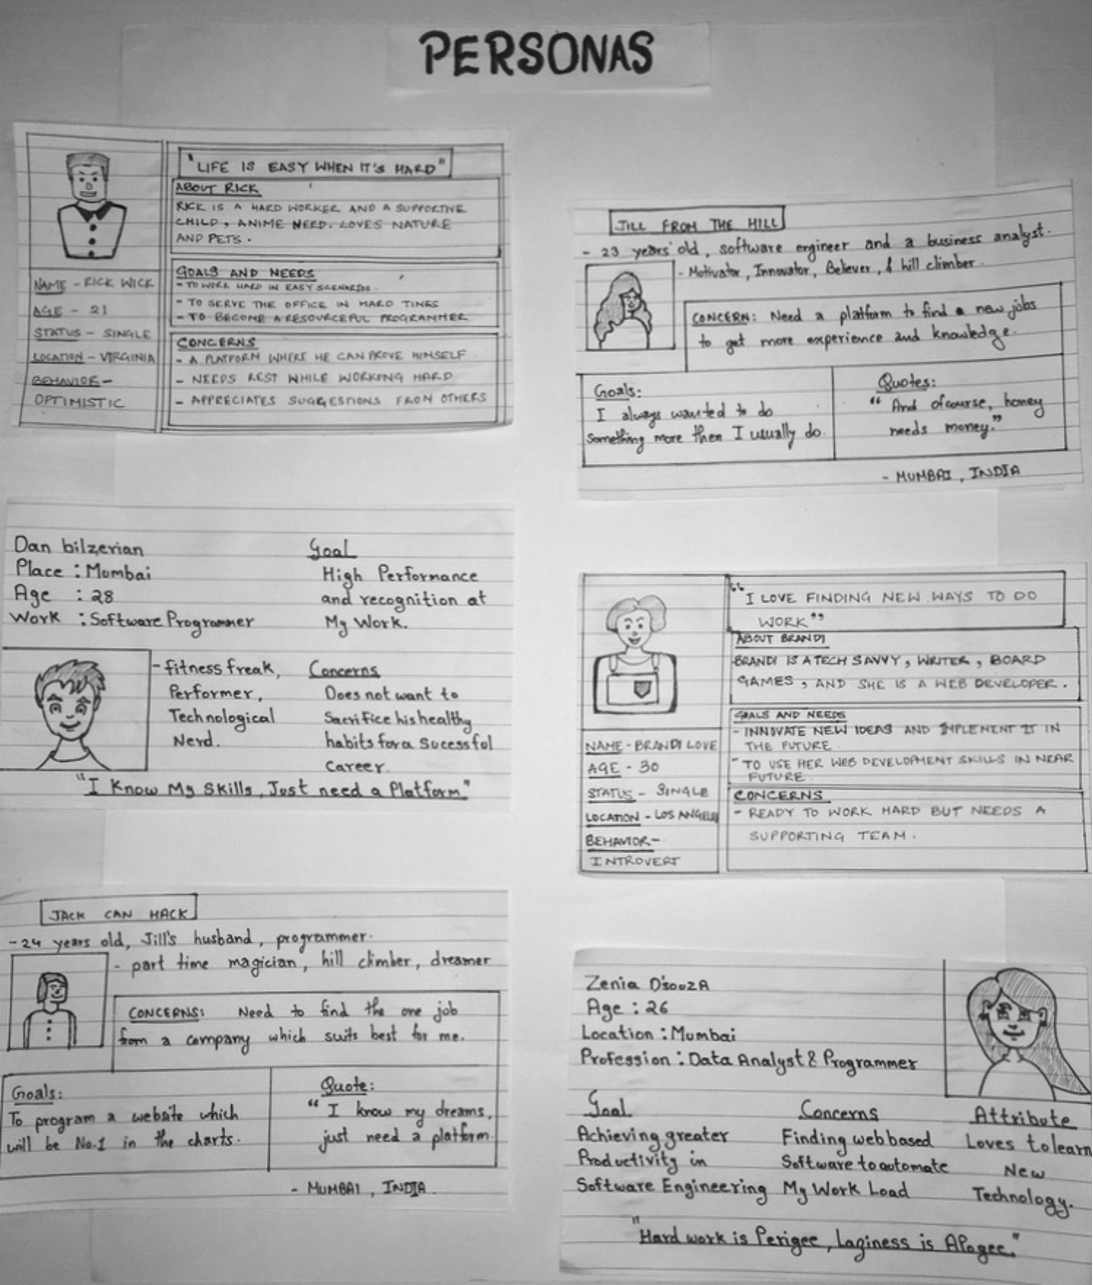 PERSONAS
"LIFE IS EASY WHEN IT'S HARD"
ABOUT RICK
RICK IS A HARD WORKER AND A SUPPORTIVE
CHILD, ANIME NERD. LOVES NATURE
AND PETS.
GOALS AND NEEDS
- TO WORK HARD IN EASY SCENARIOS.
- TO SERVE THE OFFICE IN HARD TIMES
- TO BECOME A RESOURCEFUL PROGRAMMER
CONCERNS
- A PLATFORM WHERE HE CAN PROVE HIMSELF
- NEEDS REST WHILE WORKING HARD
- APPRECIATES SUGGESTIONS FROM OTHERS
NAME - RICK WICK
AGE - 21
STATUS - SINGLE
LOCATION - VIRGINIA
BEHAVIOR -
OPTIMISTIC
JILL FROM THE HILL
- 23 years old, software engineer and a business analyst.
- Motivator, Innovator, Believer, & hill climber.
CONCERN: Need a platform to find a new jobs
to get more experience and knowledge.
Goals:
I always wanted to do
something more then I usually do.
Quotes:
"And ofcourse, honey
needs money."
- MUMBAI, INDIA
Dan bilzerian
Place : Mumbai
Age : 28
Work : Software Programmer
Goal
High Performance
and recognition at
My Work.
- fitness freak,
Performer,
Technological
Nerd.
Concerns
Does not want to
Sacrifice his healthy
habits for a Sucessful
Career.
"I Know My Skills, Just need a Platform"
"I LOVE FINDING NEW WAYS TO DO
WORK"
ABOUT BRANDI
BRANDI IS A TECH SAVVY, WRITER, BOARD
GAMES, AND SHE IS A WEB DEVELOPER.
GOALS AND NEEDS
- INNOVATE NEW IDEAS AND IMPLEMENT IT IN
THE FUTURE.
- TO USE HER WEB DEVELOPMENT SKILLS IN NEAR
FUTURE.
CONCERNS
- READY TO WORK HARD BUT NEEDS A
SUPPORTING TEAM.
NAME - BRANDI LOVE
AGE - 30
STATUS - SINGLE
LOCATION - LOS ANGELES
BEHAVIOR -
INTROVERT
JACK CAN HACK
- 24 years old, Jill's husband, programmer.
- part time magician, hill climber, dreamer
CONCERNS: Need to find the one job
from a company which suits best for me.
Goals:
To program a website which
will be No.1 in the charts.
Quote:
"I know my dreams,
just need a platform.
- MUMBAI, INDIA.
Zenia D'souzA
Age : 26
Location : Mumbai
Profession : Data Analyst & Programmer
Goal
Achieving greater
Productivity in
Software Engineering
Concerns
Finding web based
Software to automate
My Work Load
Attribute
Loves to learn
New
Technology.
"Hard work is Perigee, Laginess is Apogee."